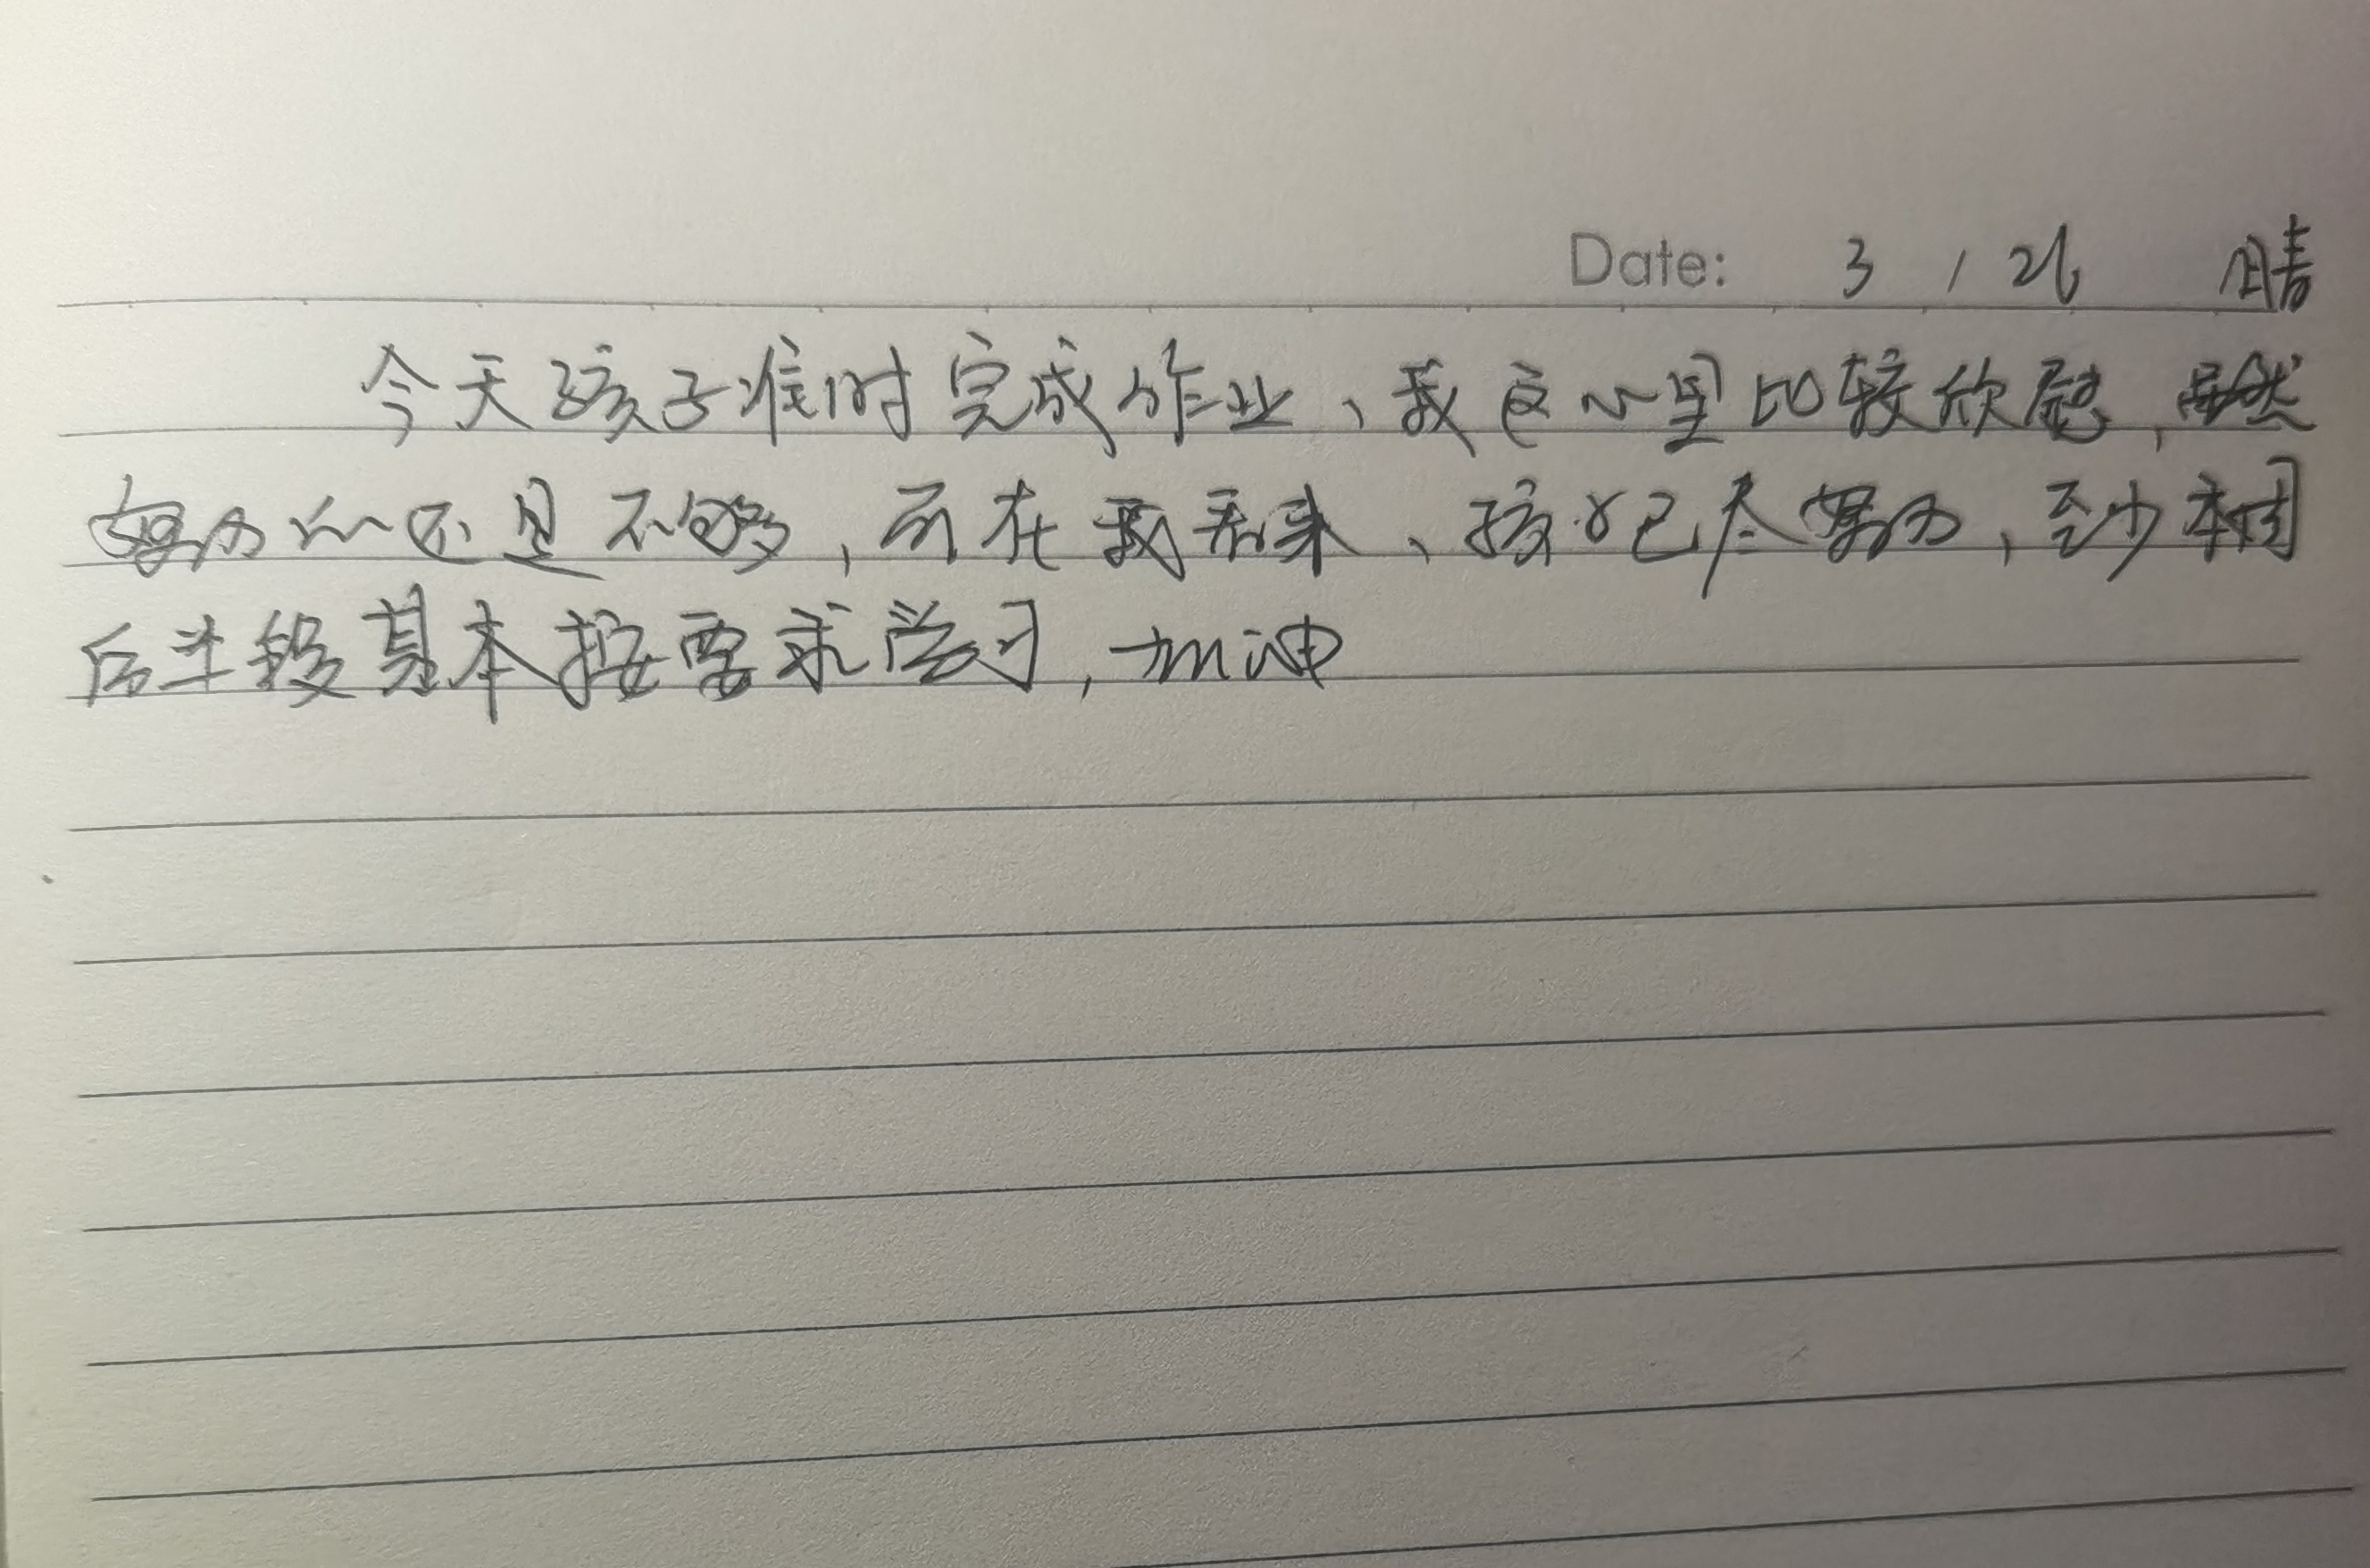 Date: 3 / 26 晴
今天孩子准时完成作业、我这心里比较欣慰,虽然
努力的还是不够,而在我看来、孩子已尽努力,至少本周
后半段基本按要求学习,加油